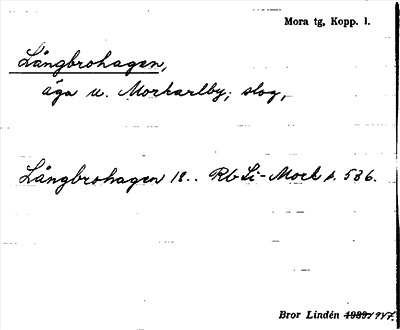 Mora tg, Kopp. l.
Långbrohagen,
äga u. Morkarlby; slog,
Långbrohagen 18.. Rb Li-Mork s. 536.
Bror Lindén 1939/1947.